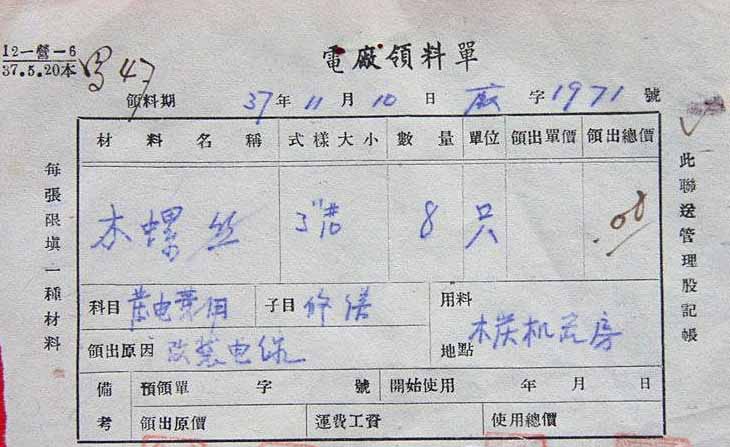 12一營一6
37.5.20本
47
電廠領料單
領料期 37年11月10日 廠字1971號
材料名稱 式樣大小 數量 單位 領出單價 領出總價
木螺丝 3" 8 只 .08
科目 子目 修缮 用料地點 木炭机瓦房
領出原因 改装电线
備考 預領單 字 號 開始使用 年 月 日
領出原價 運費工資 使用總價
每張限填一種材料
此聯送管理股記帳